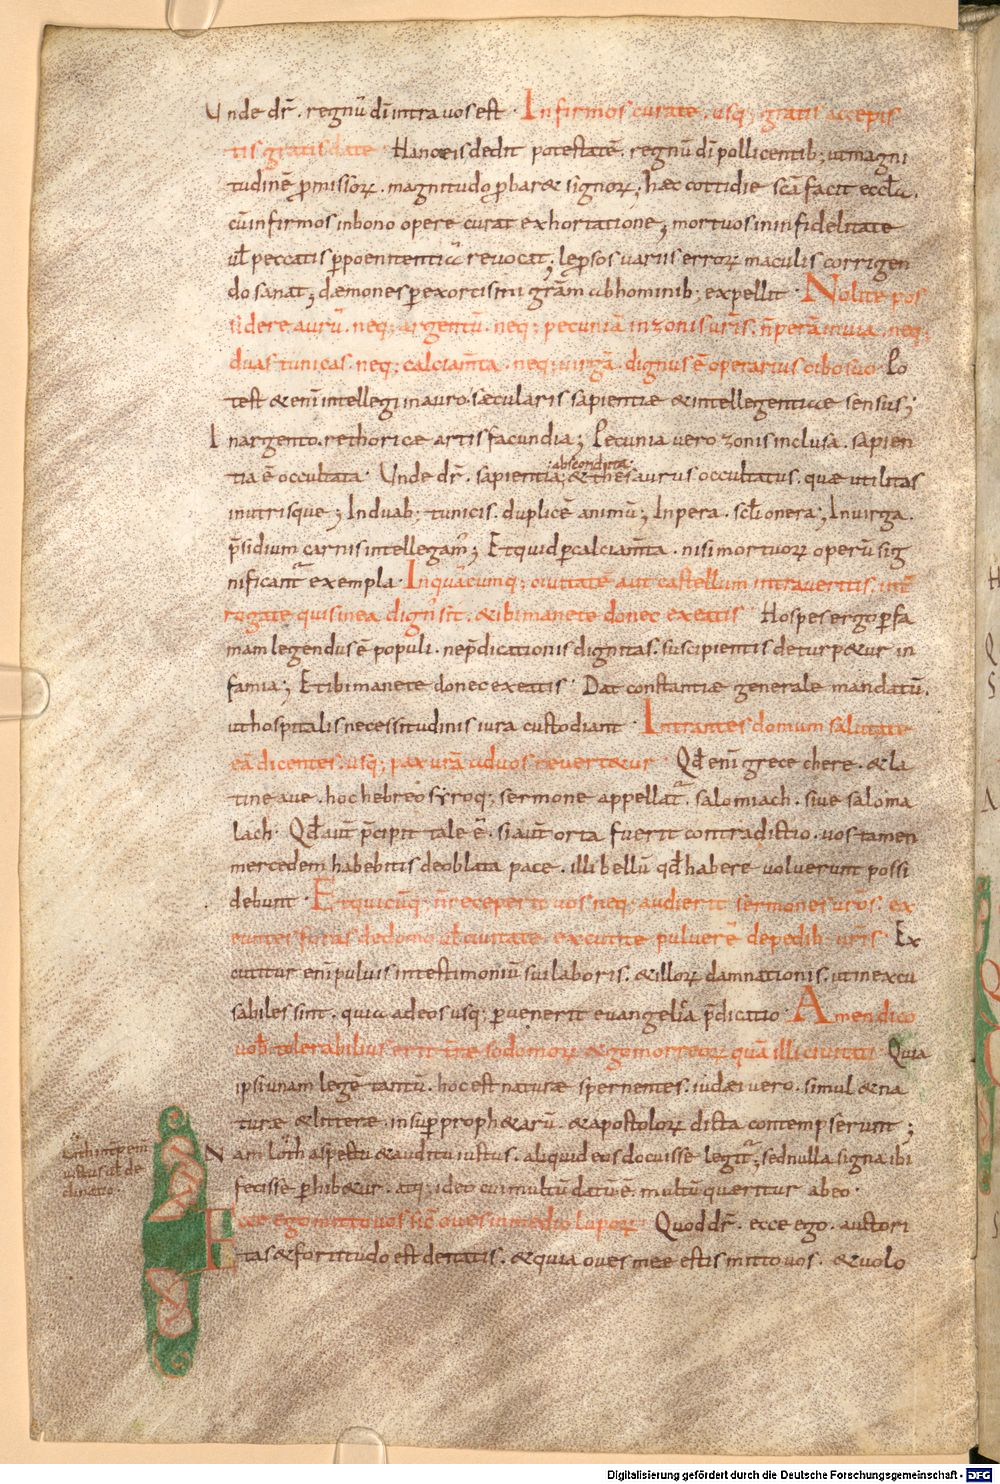 Unde dr̄. regnū dī intra vos est. Infirmos curate. usq; gratis accepis
tis gratis date. Hanc eis dedit potestatē. regnū dī pollicentib; ut magni
tudinē p̄missiorū. magnitudo p̄bar& signorū; haec cottidie scā facit eccła.
cū infirmos in bono opere curat exhortatione; mortuos in infidelitate
uł peccatis p̄ poenitentiā revocat; leprosos variis errorū maculis corrigen
do sanat; dæmones p̄ exorcismi grām ab hominib; expellit. Nolite pos
sidere aurū. neq; argentū. neq; pecuniā in zonis ūris. n̄ perā in via. neq;
duas tunicas. neq; calciam̄ta. neq; virgā. dignus ē operarius cibo suo. Po
test & enī intellegi in auro. sæcularis sapientiæ & intellegentiae sensus;
In argento. rethorice artis facundia; Pecunia vero zonis inclusa. sapien
tia ē occultata. Unde dr̄. sapientia; abscondita; & thesaurus occultatus. quæ utilitas
in utrisque; In duab; tunicis. duplicē animū; In pera. scłi onera; In virga.
p̄sidium carnis intellegam̄; Et quid p̄ calciam̄ta. nisi mortuorū operū sig
nificant̄ exempla. In quācumq; civitatē aut castellum intraveritis. int̄
rogate quis in ea dign̄ sit. & ibi manete donec exeatis. Hospes ergo p̄ fa
mam legendus ē populi. ne p̄dicationis dignitas. suscipientis deturp&ur in
famia; Et ibi manete donec exeatis. Dat constantiæ generale mandatū.
ut hospitalis necessitudinis iura custodiant. Intrantes domum salutate
eā dicentes. usq; pax ūrā ad vos revert&ur. Qđ enī grece chere. & la
tine ave. hoc hebreo syroq; sermone appellat̄. salomiach. sive saloma
lach. Qđ aut̄ p̄cipit tale ē. si aut̄ orta fuerit contradictio. vos tamen
mercedem habebitis de oblata pace. illi bellū qđ habere voluerunt possi
debunt. Et quicūq; n̄ receperit vos neq; audierit sermones ūros. ex
euntes foras de domo uł civitate. excutite pulverē de pedib; ūris. Ex
cutitur enī pulvis in testimoniū sui laboris. & illorū damnationis. ut inexcu
sabiles sint. quia ad eos usq; p̄venerit evangelica p̄dicatio. Amen dico
vob̄ tolerabilius erit t̄re sodomorū & gomorreorū quā illi civitati. Quia
ipsi unam legē tantū. hoc est naturæ spernentes. iudæi vero. simul & na
turæ & litteræ. insup̄ proph&arū. & apostolorū dicta contempserunt;
Nam loth aspectu & auditu iustus. aliquid eos docuisse legit̄; sed nulla signa ibi
fecisse p̄hib&ur. atq; ideo cui multū datū ē. multū queritur ab eo.
Ecce ego mitto vos sic̄ oves in medio luporū. Quod dr̄. ecce ego. auctori
tas & fortitudo est deitatis. & quia oves mee estis mitto vos. & volo
Digitalisierung gefördert durch die Deutsche Forschungsgemeinschaft - DFG